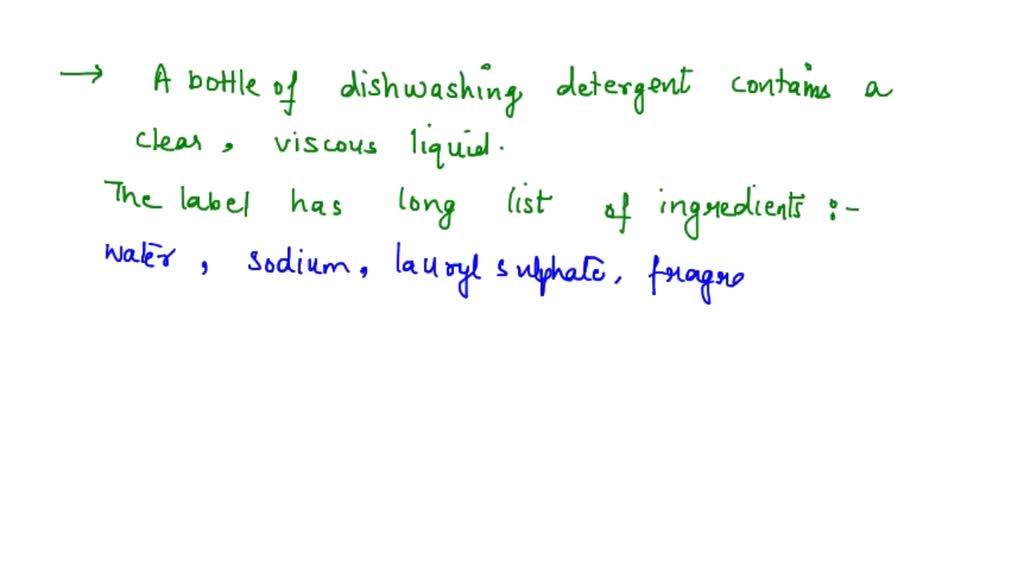 → A bottle of dishwashing detergent contains a
clear, viscous liquid.
The label has long list of ingredients :-
water, sodium, lauryl sulphate, fragre